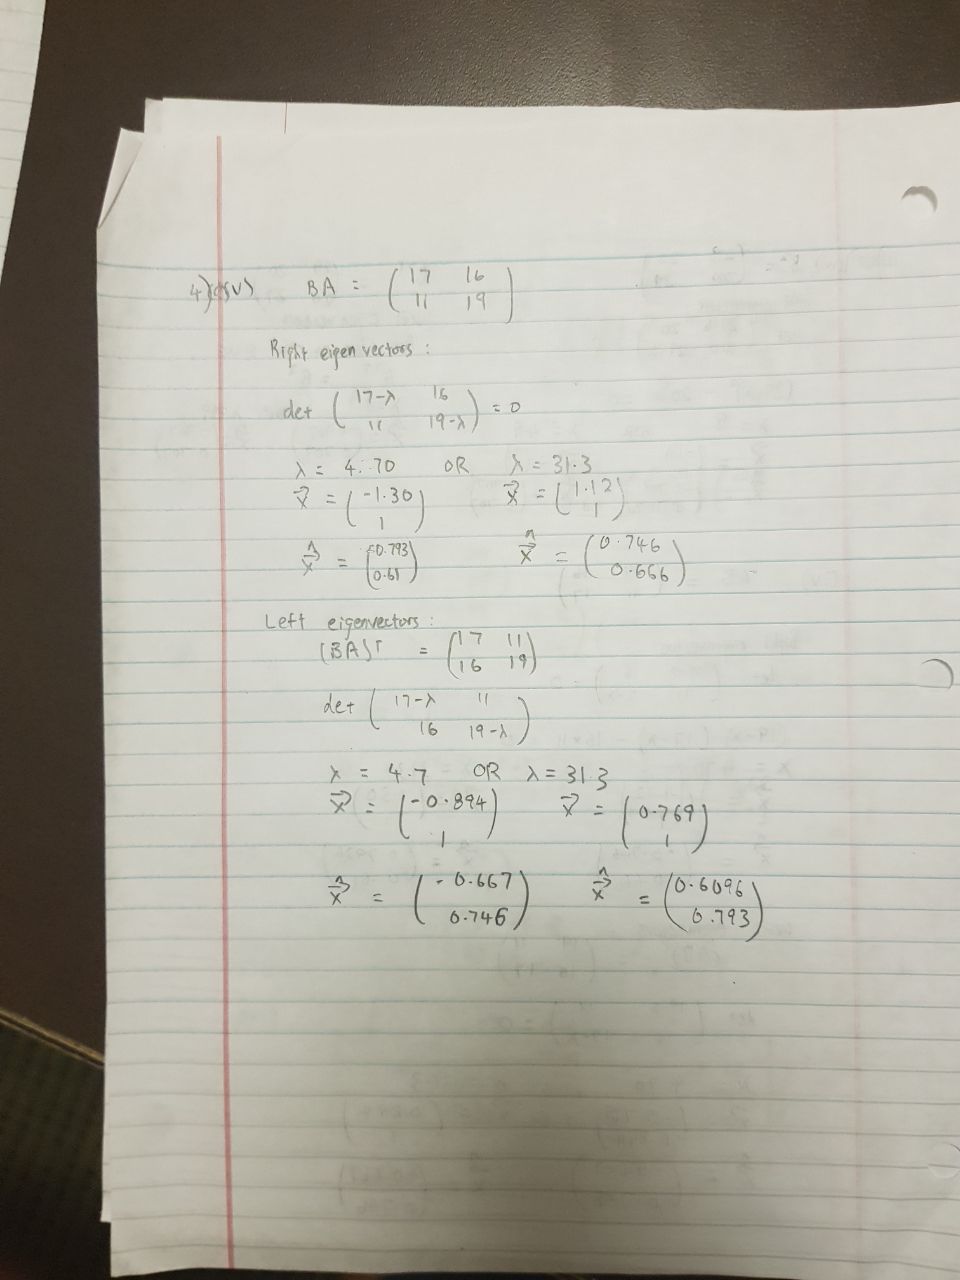 4) (iv) BA = ( 17 16
11 19 )
Right eigenvectors :
det ( 17-λ 16
11 19-λ ) = 0
λ = 4.70 OR λ = 31.3
x⃗ = ( -1.30 x⃗ = ( 1.12
1 ) 1 )
x̂ = ( -0.793 x̂ = ( 0.746
0.61 ) 0.666 )
Left eigenvectors :
(BA)ᵀ = ( 17 11
16 19 )
det ( 17-λ 11
16 19-λ )
λ = 4.7 OR λ = 31.3
x⃗ = ( -0.894 x⃗ = ( 0.769
1 ) 1 )
x̂ = ( -0.667 x̂ = ( 0.6096
0.746 ) 0.793 )